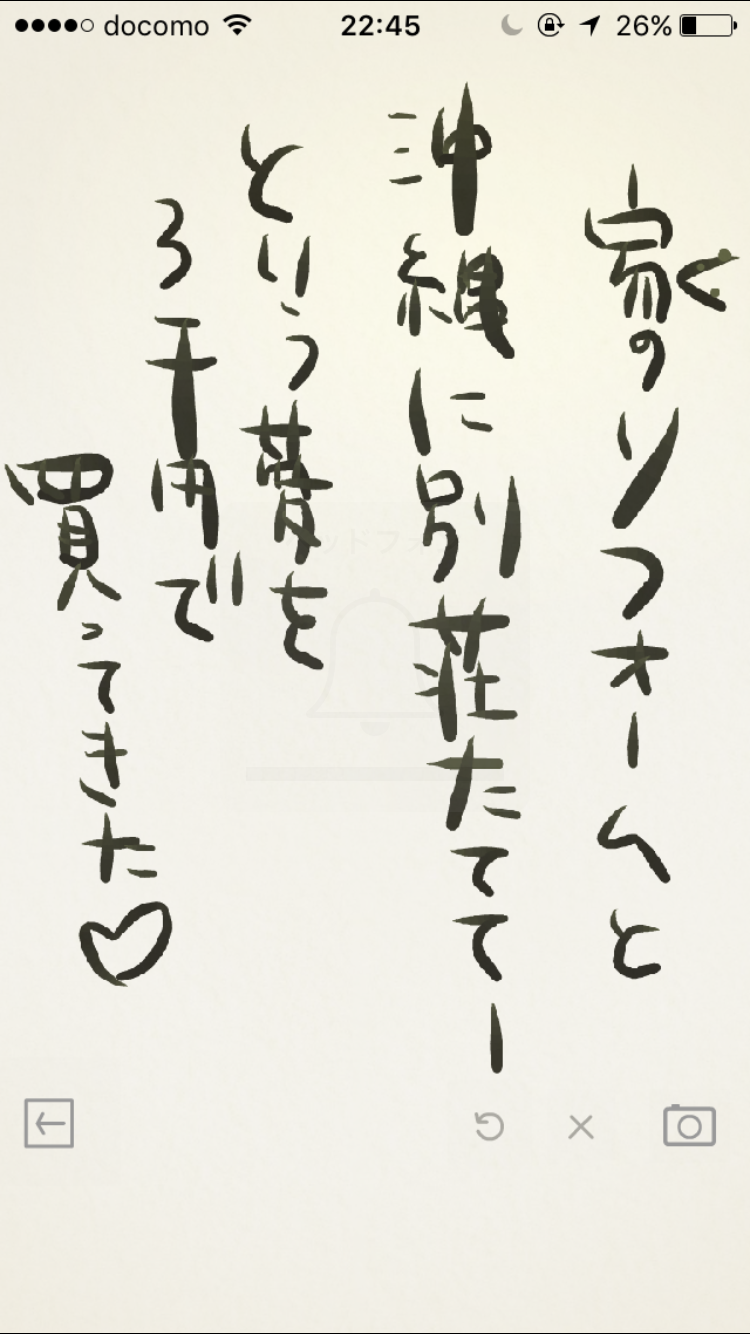 docomo 22:45 26%
家のリフォームと
沖縄に別荘たててー
という夢を
3千円で
買ってきた♡